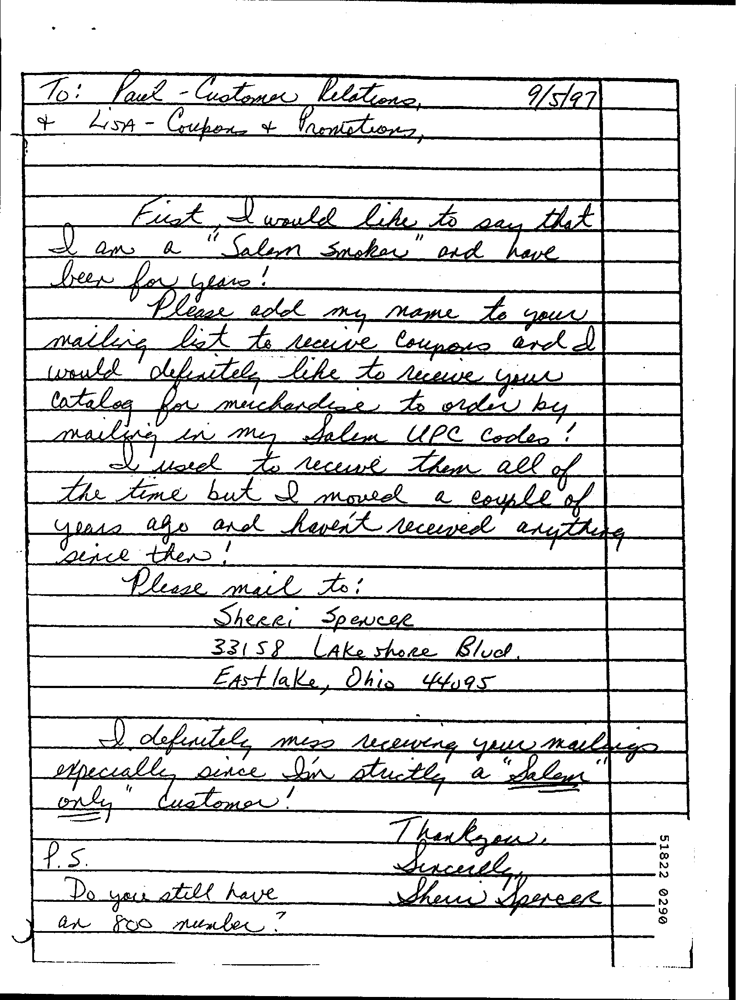 To: Paul - Customer Relations, 9/5/97
+ Lisa - Coupons + Promotions,
First, I would like to say that
I am a "Salem Smoker" and have
been for years!
Please add my name to your
mailing list to receive coupons and I
would definitely like to receive your
catalog for merchandise to order by
mailing in my Salem UPC codes!
I used to receive them all of
the time but I moved a couple of
years ago and haven't received anything
since then!
Please mail to:
Sherri Spencer
33158 Lake shore Blvd.
Eastlake, Ohio 44095
I definitely miss receiving your mailings
especially since I'm strictly a "Salem
only" customer!
Thankyou,
Sincerely,
Sherri Spencer
P.S.
Do you still have
an 800 number?
51822 0290